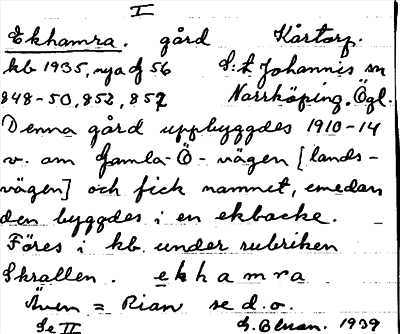 I
Ekhamra. gård Kårtorp.
kb 1935, nya df 56 S:t Johannis sn
848-50, 852, 857 Norrköping. Ögl.
Denna gård uppbyggdes 1910-14
v. om Gamla-Ö-vägen [lands-
vägen] och fick namnet, emedan
den byggdes i en ekbacke. -
Föres i kb. under rubriken
Skrallen. ekhamra
Även = Rian se d.o.
Se II 1939